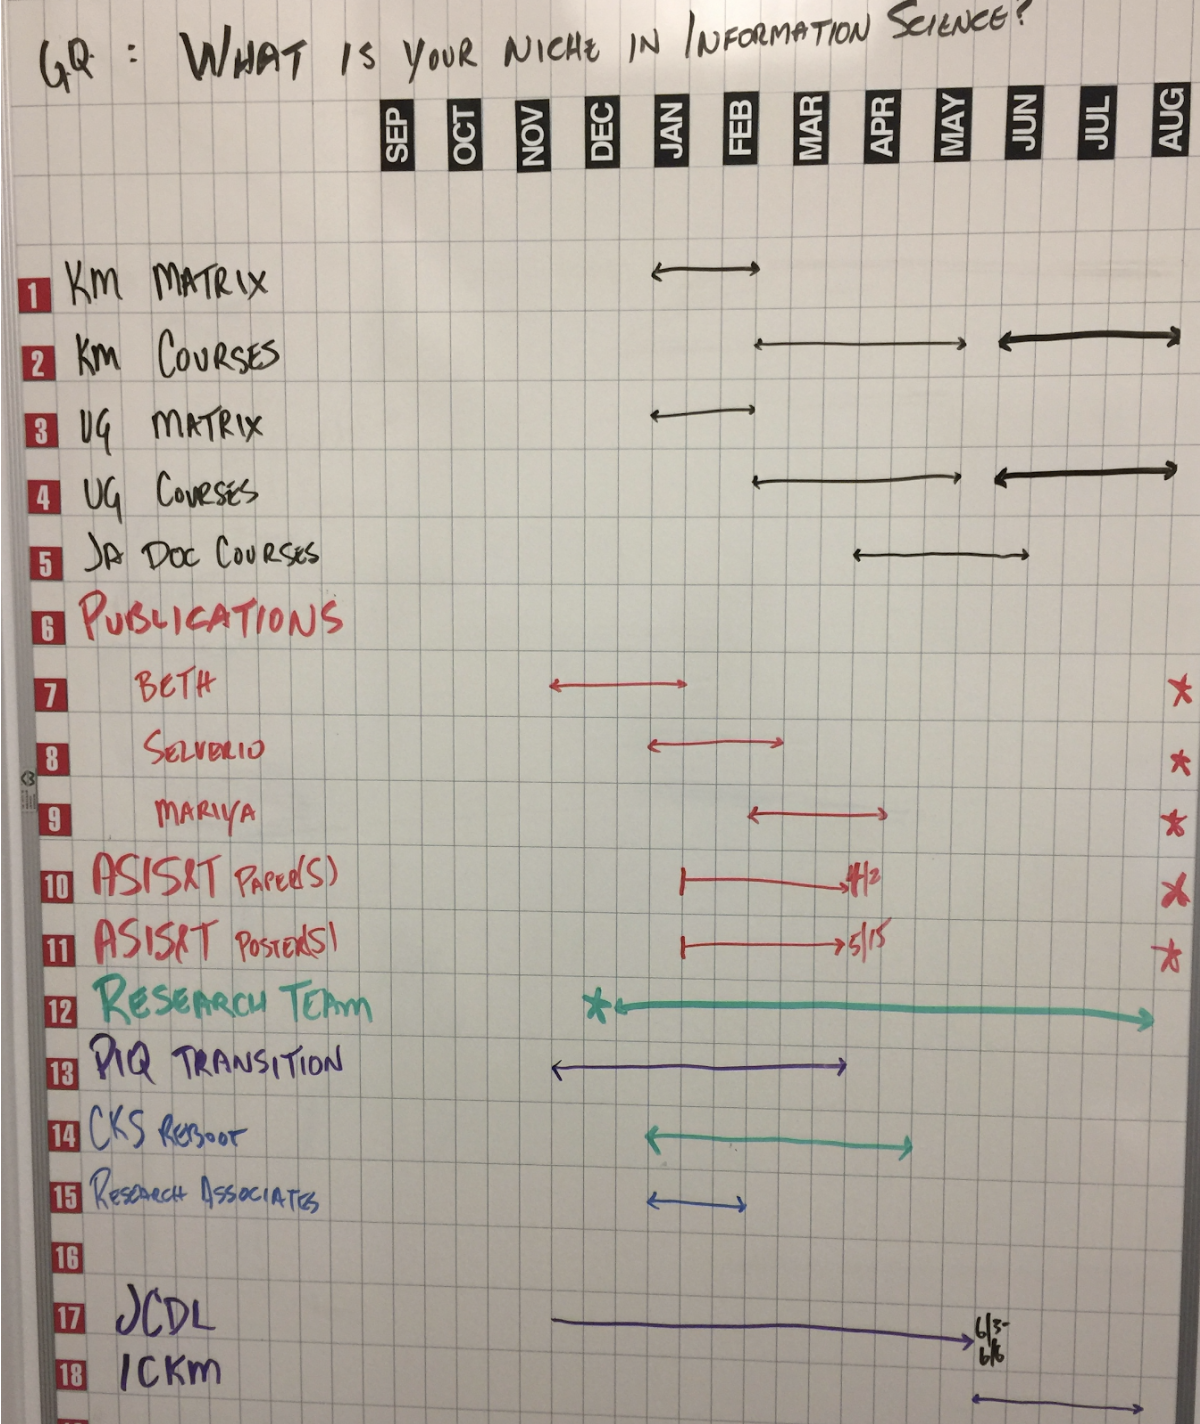 G.Q. : WHAT IS YOUR NICHE IN INFORMATION SCIENCE?
SEP OCT NOV DEC JAN FEB MAR APR MAY JUN JUL AUG
1 KM MATRIX
2 KM COURSES
3 UG MATRIX
4 UG COURSES
5 JA DOC COURSES
6 PUBLICATIONS
7 BETH
8 SELVERIO
9 MARIYA
10 ASIS&T PAPER(S) 4/2
11 ASIS&T POSTER(S) 5/15
12 RESEARCH TEAM
13 PIQ TRANSITION
14 CKS REBOOT
15 RESEARCH ASSOCIATES
16
17 JCDL 6/3-
6/6
18 ICKM